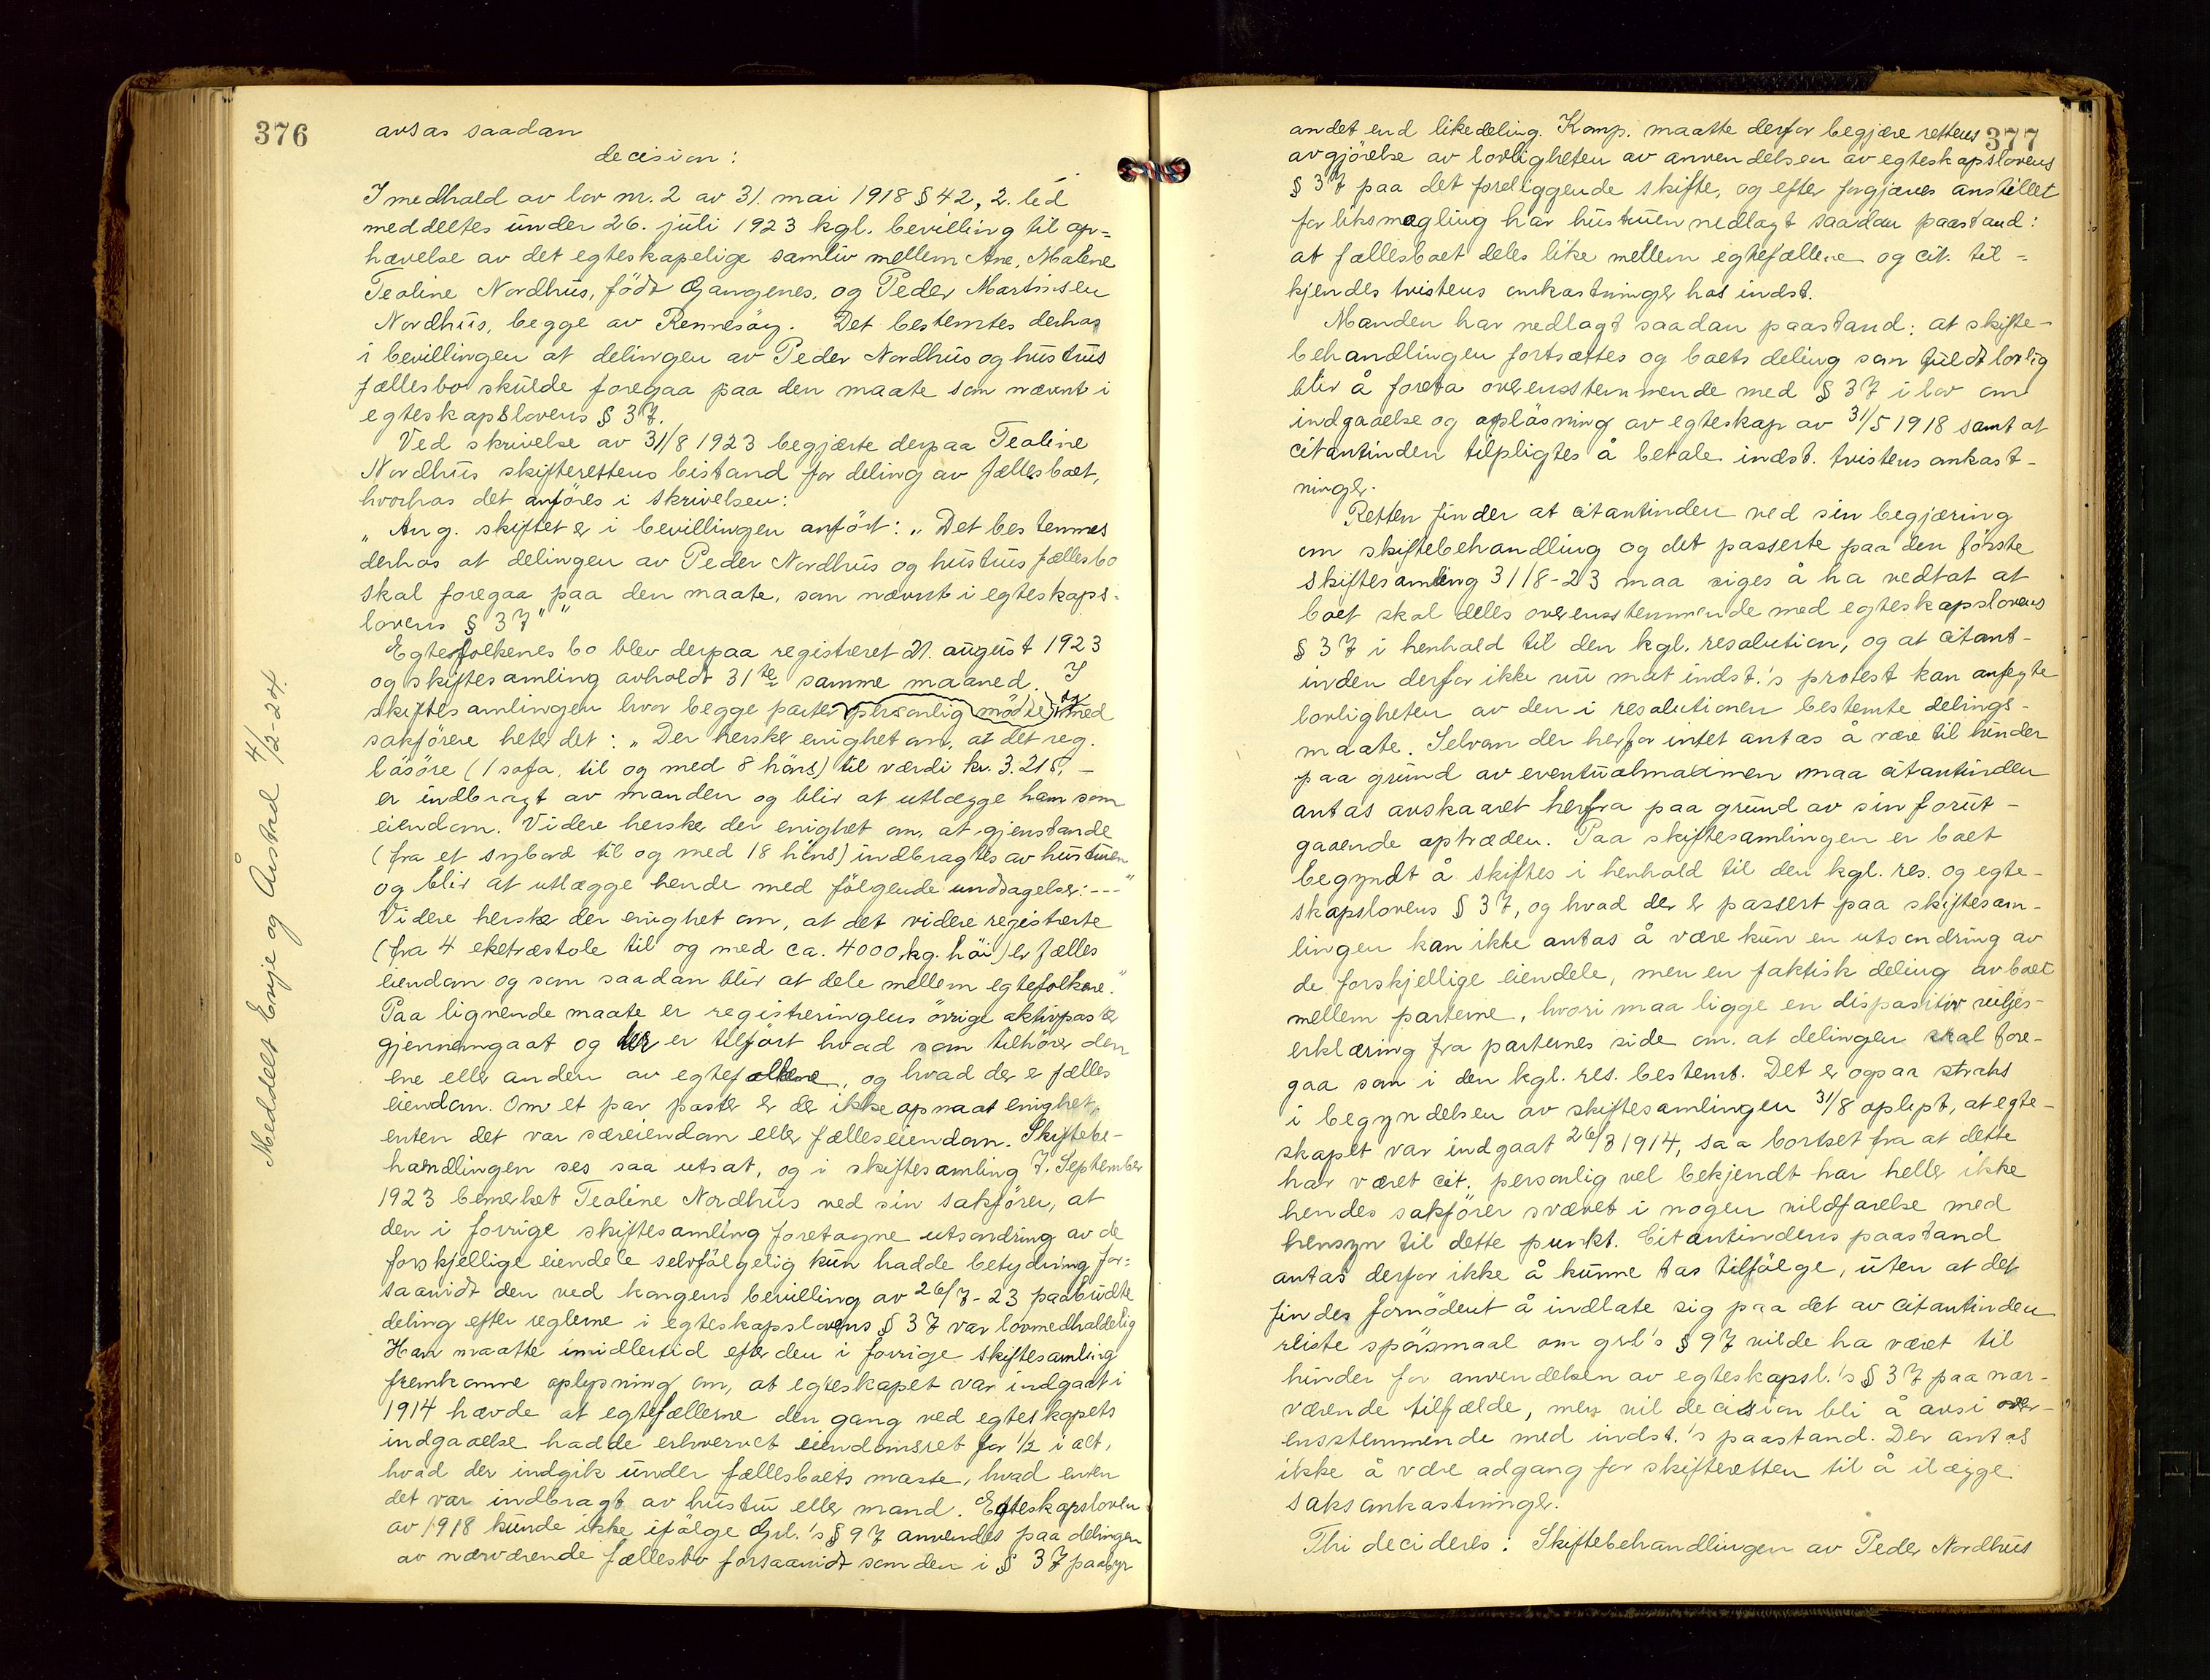 376
avsas saadan
decision:
I medhald av lov nr. 2 av 31. mai 1918 § 42, 2. led
meddeltes under 26. juli 1923 kgl. bevilling til op=
hævelse av det egteskapelige samliv mellem Ane, Malene
Teoline Nordhus, födt Gangenes, og Peder Martinsen
Nordhus, begge av Rennesöy. Det bestemtes derhos
i bevillingen at delingen av Peder Nordhus og hustrus
fællesbo skulde foregaa paa den maate som nævnt i
egteskapslovens § 37.
Ved skrivelse av 31/8 1923 begjærte derpaa Teoline
Nordhus skifterettens bistand for deling av fællesboet,
hvorhos det anföres i skrivelsen:
„Ang. skiftet er i bevillingen anfört: „Det bestemmes
derhos at delingen av Peder Nordhus og hustrus fællesbo
skal foregaa paa den maate, som nævnt i egteskaps-
lovens § 37" "
Egtefolkenes bo blev derpaa registreret 21. august 1923
og skiftesamling avholdt 31te samme maaned. I
skiftesamlingen hvor begge parter personlig mödte og med
sakförere heter det: „Der hersker enighet om, at det reg.
lösöre (1 sofa, til og med 8 höns) til værdi kr. 3.215,-
er indbragt av manden og blir at utlægge ham som
eiendom. Videre hersker der enighet om, at gjenstande
(fra et sybord til og med 18 höns) indbragtes av hustruen
og blir at utlægge hende med fölgende undtagelser: ---"
Videre hersker der enighet om, at det videre registrerte
(fra 4 eketræstole til og med ca. 4000 kg. höi) er fælles
eiendom og som saadan blir at dele mellem egtefolkene."
Paa lignende maate er registreringens övrige aktivposter
gjennemgaat og der er tilfört hvad som tilhörer den
ene eller anden av egtefællene, og hvad der er fælles
eiendom. Om et par poster er der ikke opnaat enighet,
enten det var særeiendom eller fælleseiendom. Skiftebe-
handlingen ses saa utsat, og i skiftesamling 7. September
1923 bemerket Teoline Nordhus ved sin sakförer, at
den i forrige skiftesamling foretagne utsondring av de
forskjellige eiendele selvfölgelig kun hadde betydning for=
saavidt den ved kongens bevilling av 26/7-23 paabudte
deling efter reglerne i egteskapslovens § 37 var lovmedholdelig
Han maatte imidlertid efter den i forrige skiftesamling
fremkomne oplysning om, at egteskapet var indgaat i
1914 hævde at egtefællerne den gang ved egteskapets
indgaaelse hadde erhvervet eiendomsret for 1/2 i alt,
hvad der indgik under fællesboets masse, hvad enten
det var indbragt av hustru eller mand. Egteskapsloven
av 1918 kunde ikke ifölge Grl.'s § 97 anvendes paa delingen
av nærværende fællesbo forsaavidt som den i § 37 paabyr
Meddelt Evje og Austad 4/2-24.
377
andet end likedeling. Komp. maatte derfor begjære rettens
avgjörelse av lovligheten av anvendelsen av egteskapslovens
§ 37 paa det foreliggende skifte, og efter forgjæves anstillet
forliksmegling har hustruen nedlagt saadan paastand:
at fællesboet deles like mellem egtefællene og cit. til=
kjendes tvistens omkostninger hos indst.
Manden har nedlagt saadan paastand: at skifte-
behandlingen fortsættes og boets deling som fuldt lovlig
blir å foreta overensstemmende med § 37 i lov om
indgaaelse og oplösning av egteskap av 31/5 1918 samt at
citantinden tilpligtes å betale indst. tvistens omkost-
ninger.
Retten finder at citantinden ved sin begjæring
om skiftebehandling og det passerte paa den förste
skiftesamling 31/8-23 maa siges å ha vedtat at
boet skal deles overensstemmende med egteskapslovens
§ 37 i henhold til den kgl. resolution, og at citant-
inden derfor ikke nu mot indst.'s protest kan anfegte
lovligheten av den i resolutionen bestemte delings-
maate. Selvom der herfor intet antas å være til hinder
paa grund av eventualmaximen maa citantinden
antas avskaaret herfra paa grund av sin forut-
gaaende optræden. Paa skiftesamlingen er boet
begyndt å skiftes i henhold til den kgl. res. og egte-
skapslovens § 37, og hvad der er passert paa skiftesam-
lingen kan ikke antas å være kun en utsondring av
de forskjellige eiendele, men en faktisk deling av boet
mellem parterne, hvori maa ligge en dispositiv viljes-
erklæring fra parternes side om, at delingen skal fore-
gaa som i den kgl. res. bestemt. Det er ogsaa straks
i begyndelsen av skiftesamlingen 31/8 oplyst, at egte-
skapet var indgaat 26/3 1914, saa bortset fra at dette
har været cit. personlig vel bekjendt har heller ikke
hendes sakförer svævet i nogen vildfarelse med
hensyn til dette punkt. Citantindens paastand
antas derfor ikke å kunne tas tilfölge, uten at det
findes fornödent å indlate sig paa det av citantinden
reiste spörsmaal om grl's § 97 vilde ha været til
hinder for anvendelsen av egteskapsl.'s § 37 paa nær-
værende tilfælde, men vil decision bli å avsi over-
ensstemmende med indst.'s paastand. Der antas
ikke å være adgang for skifteretten til å ilægge
saksomkostninger.
Thi decideres: Skiftebehandlingen av Peder Nordhus